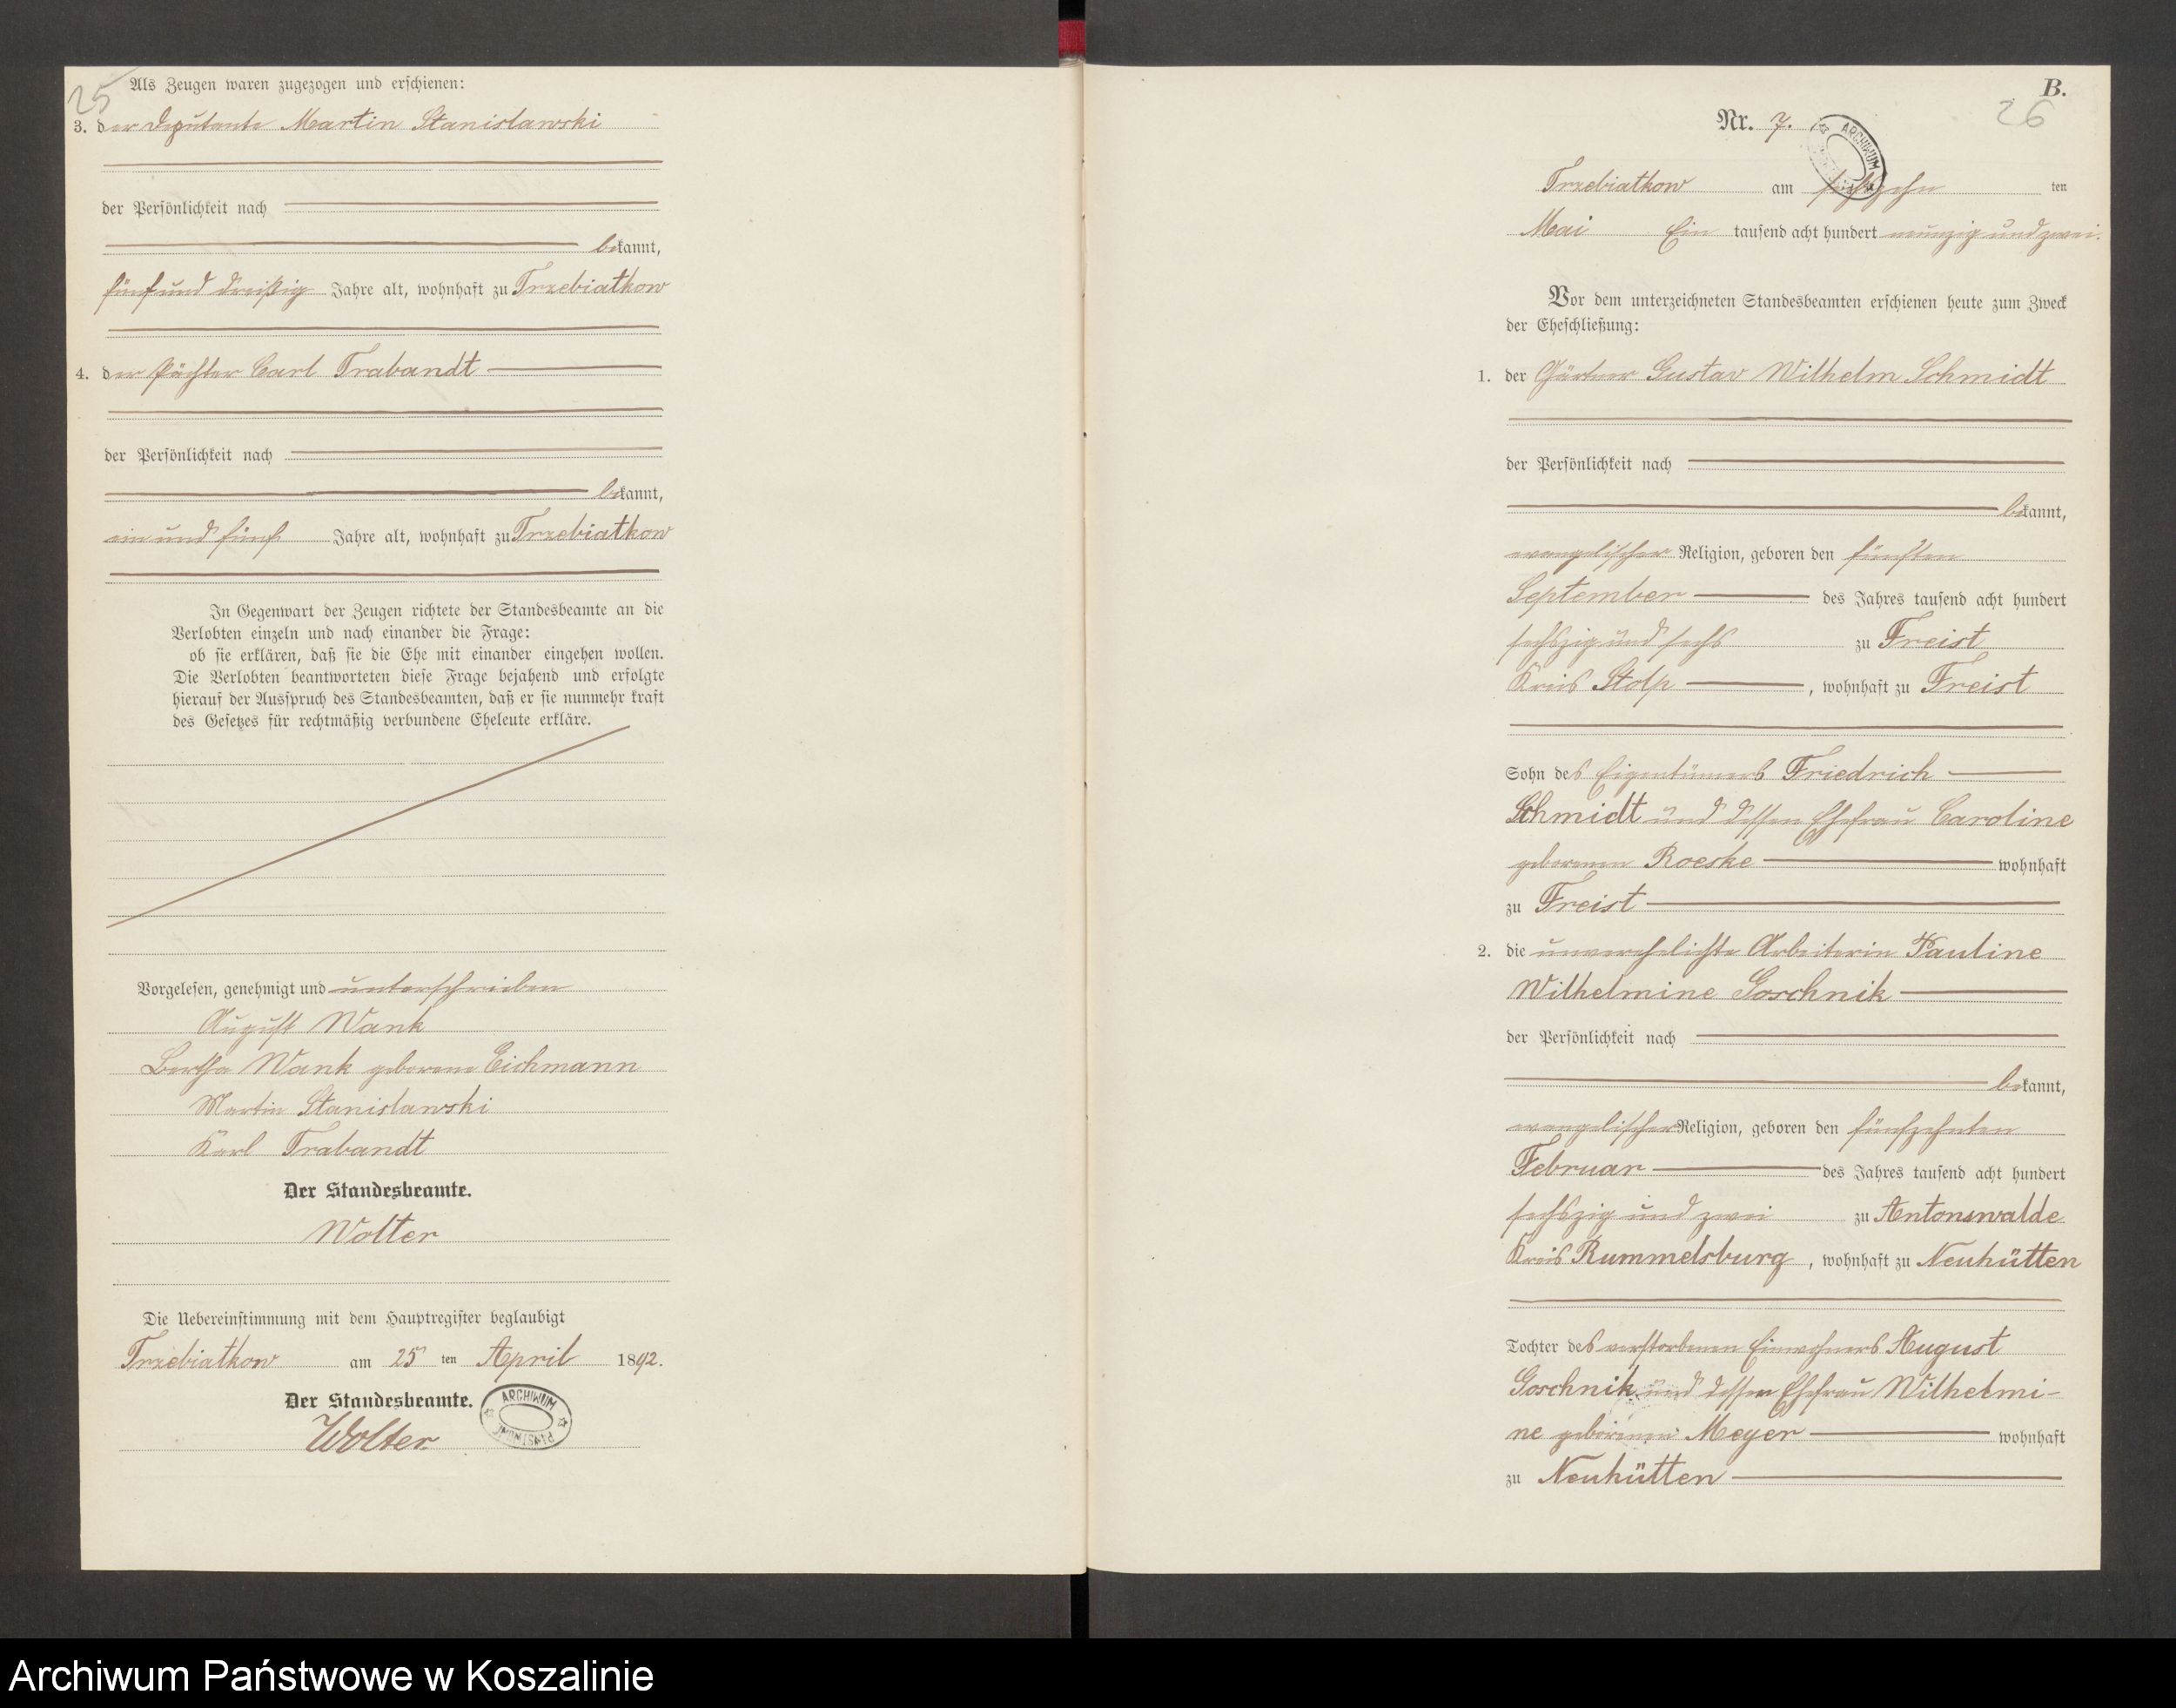 25
Als Zeugen waren zugezogen und erschienen:
3. der Deputante Martin Stanislawski
der Persönlichkeit nach
bekannt,
fünf und dreißig Jahre alt, wohnhaft zu Trzebiatkow
4. der Pächter Carl Trabandt
der Persönlichkeit nach
bekannt,
ein und fünf Jahre alt, wohnhaft zu Trzebiatkow
In Gegenwart der Zeugen richtete der Standesbeamte an die
Verlobten einzeln und nach einander die Frage:
ob sie erklären, daß sie die Ehe mit einander eingehen wollen.
Die Verlobten beantworteten diese Frage bejahend und erfolgte
hierauf der Ausspruch des Standesbeamten, daß er sie nunmehr kraft
des Gesetzes für rechtmäßig verbundene Eheleute erkläre.
Vorgelesen, genehmigt und unterschrieben
August Wank
Bertha Wank geborene Eichmann
Martin Stanislawski
Karl Trabandt
Der Standesbeamte.
Wolter
Die Uebereinstimmung mit dem Hauptregister beglaubigt
Trzebiatkow am 25 ten April 1892.
Der Standesbeamte.
Wolter
ARCHIWUM PAŃSTWOWE
B.
26
Nr. 7.
ARCHIWUM
Trzebiatkow am ten
Mai Ein tausend acht hundert neunzig und zwei.
Vor dem unterzeichneten Standesbeamten erschienen heute zum Zweck
der Eheschließung:
1. der Gärtner Gustav Wilhelm Schmidt
der Persönlichkeit nach
bekannt,
evangelischer Religion, geboren den fünften
September des Jahres tausend acht hundert
sechszig und sechs zu Freist
Kreis Stolp, wohnhaft zu Freist
Sohn des Eigentümers Friedrich
Schmidt und dessen Ehefrau Caroline
geborenen Roeske wohnhaft
zu Freist
2. die unverehelichte Arbeiterin Pauline
Wilhelmine Goschnik
der Persönlichkeit nach
bekannt,
evangelischer Religion, geboren den fünfzehnten
Februar des Jahres tausend acht hundert
sechszig und zwei zu Antonswalde
Kreis Rummelsburg, wohnhaft zu Neuhütten
Tochter des verstorbenen Einwohners August
Goschnik und dessen Ehefrau Wilhelmi-
ne geborenen Meyer wohnhaft
zu Neuhütten
Archiwum Państwowe w Koszalinie